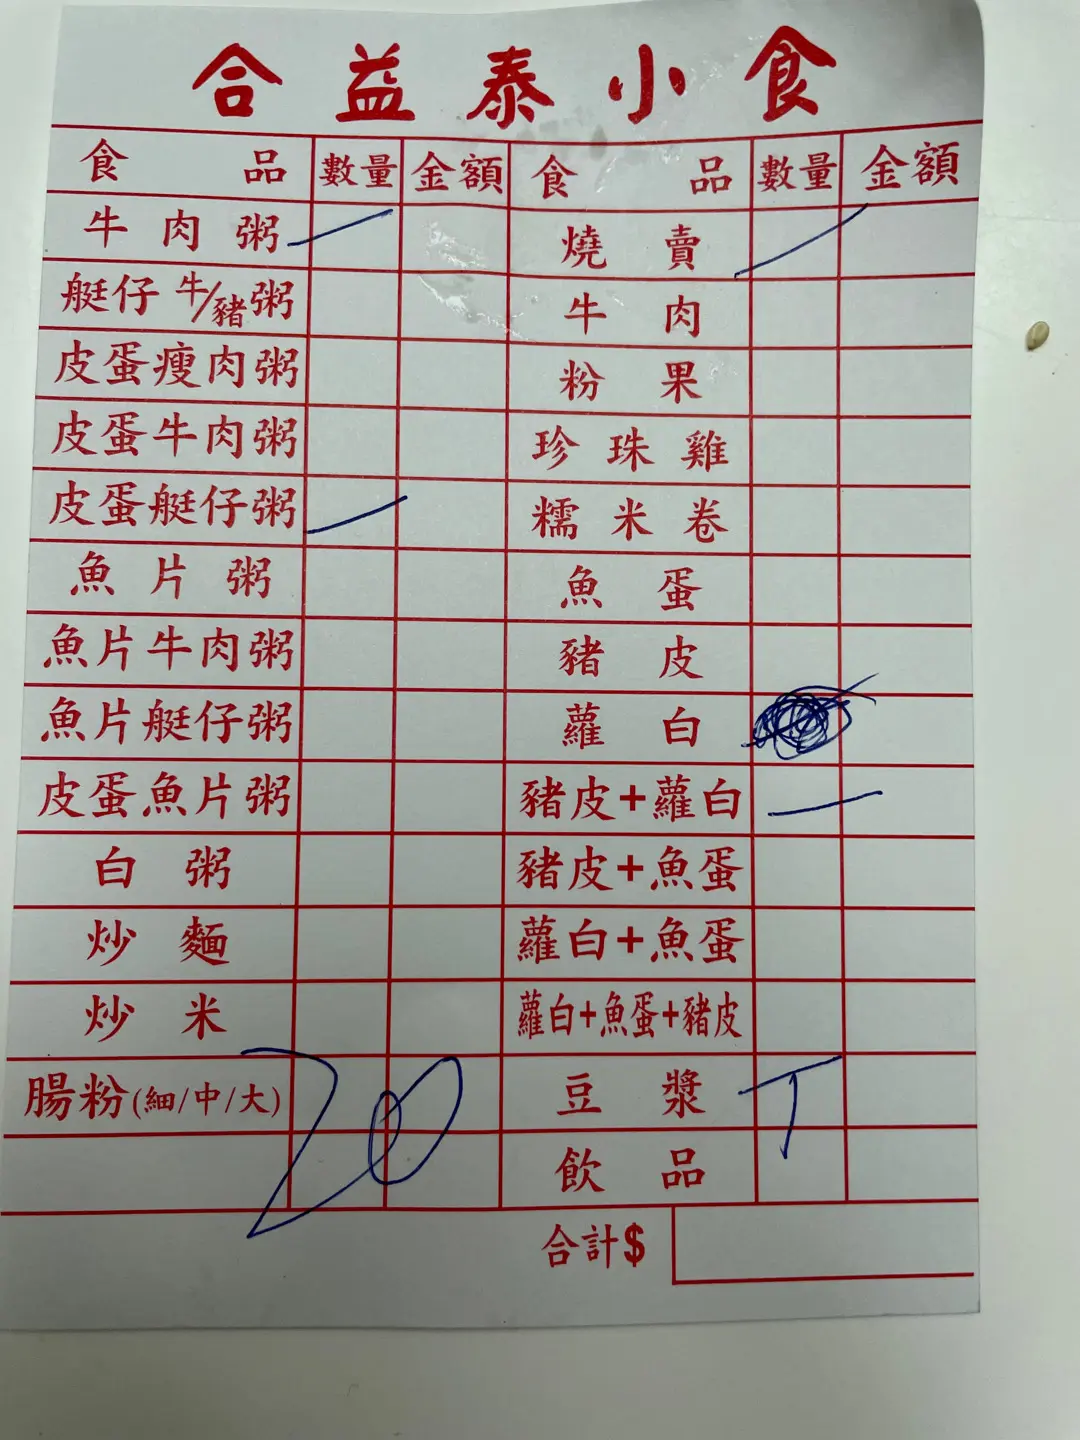 合益泰小食
食品 數量 金額 食品 數量 金額
牛肉粥 一 燒賣 一
艇仔牛/豬粥 牛肉
皮蛋瘦肉粥 粉果
皮蛋牛肉粥 珍珠雞
皮蛋艇仔粥 一 糯米卷
魚片粥 魚蛋
魚片牛肉粥 豬皮
魚片艇仔粥 蘿白
皮蛋魚片粥 豬皮+蘿白 一
白粥 豬皮+魚蛋
炒麵 蘿白+魚蛋
炒米 蘿白+魚蛋+豬皮
腸粉(細/中/大) 20 豆漿 T
飲品
合計$